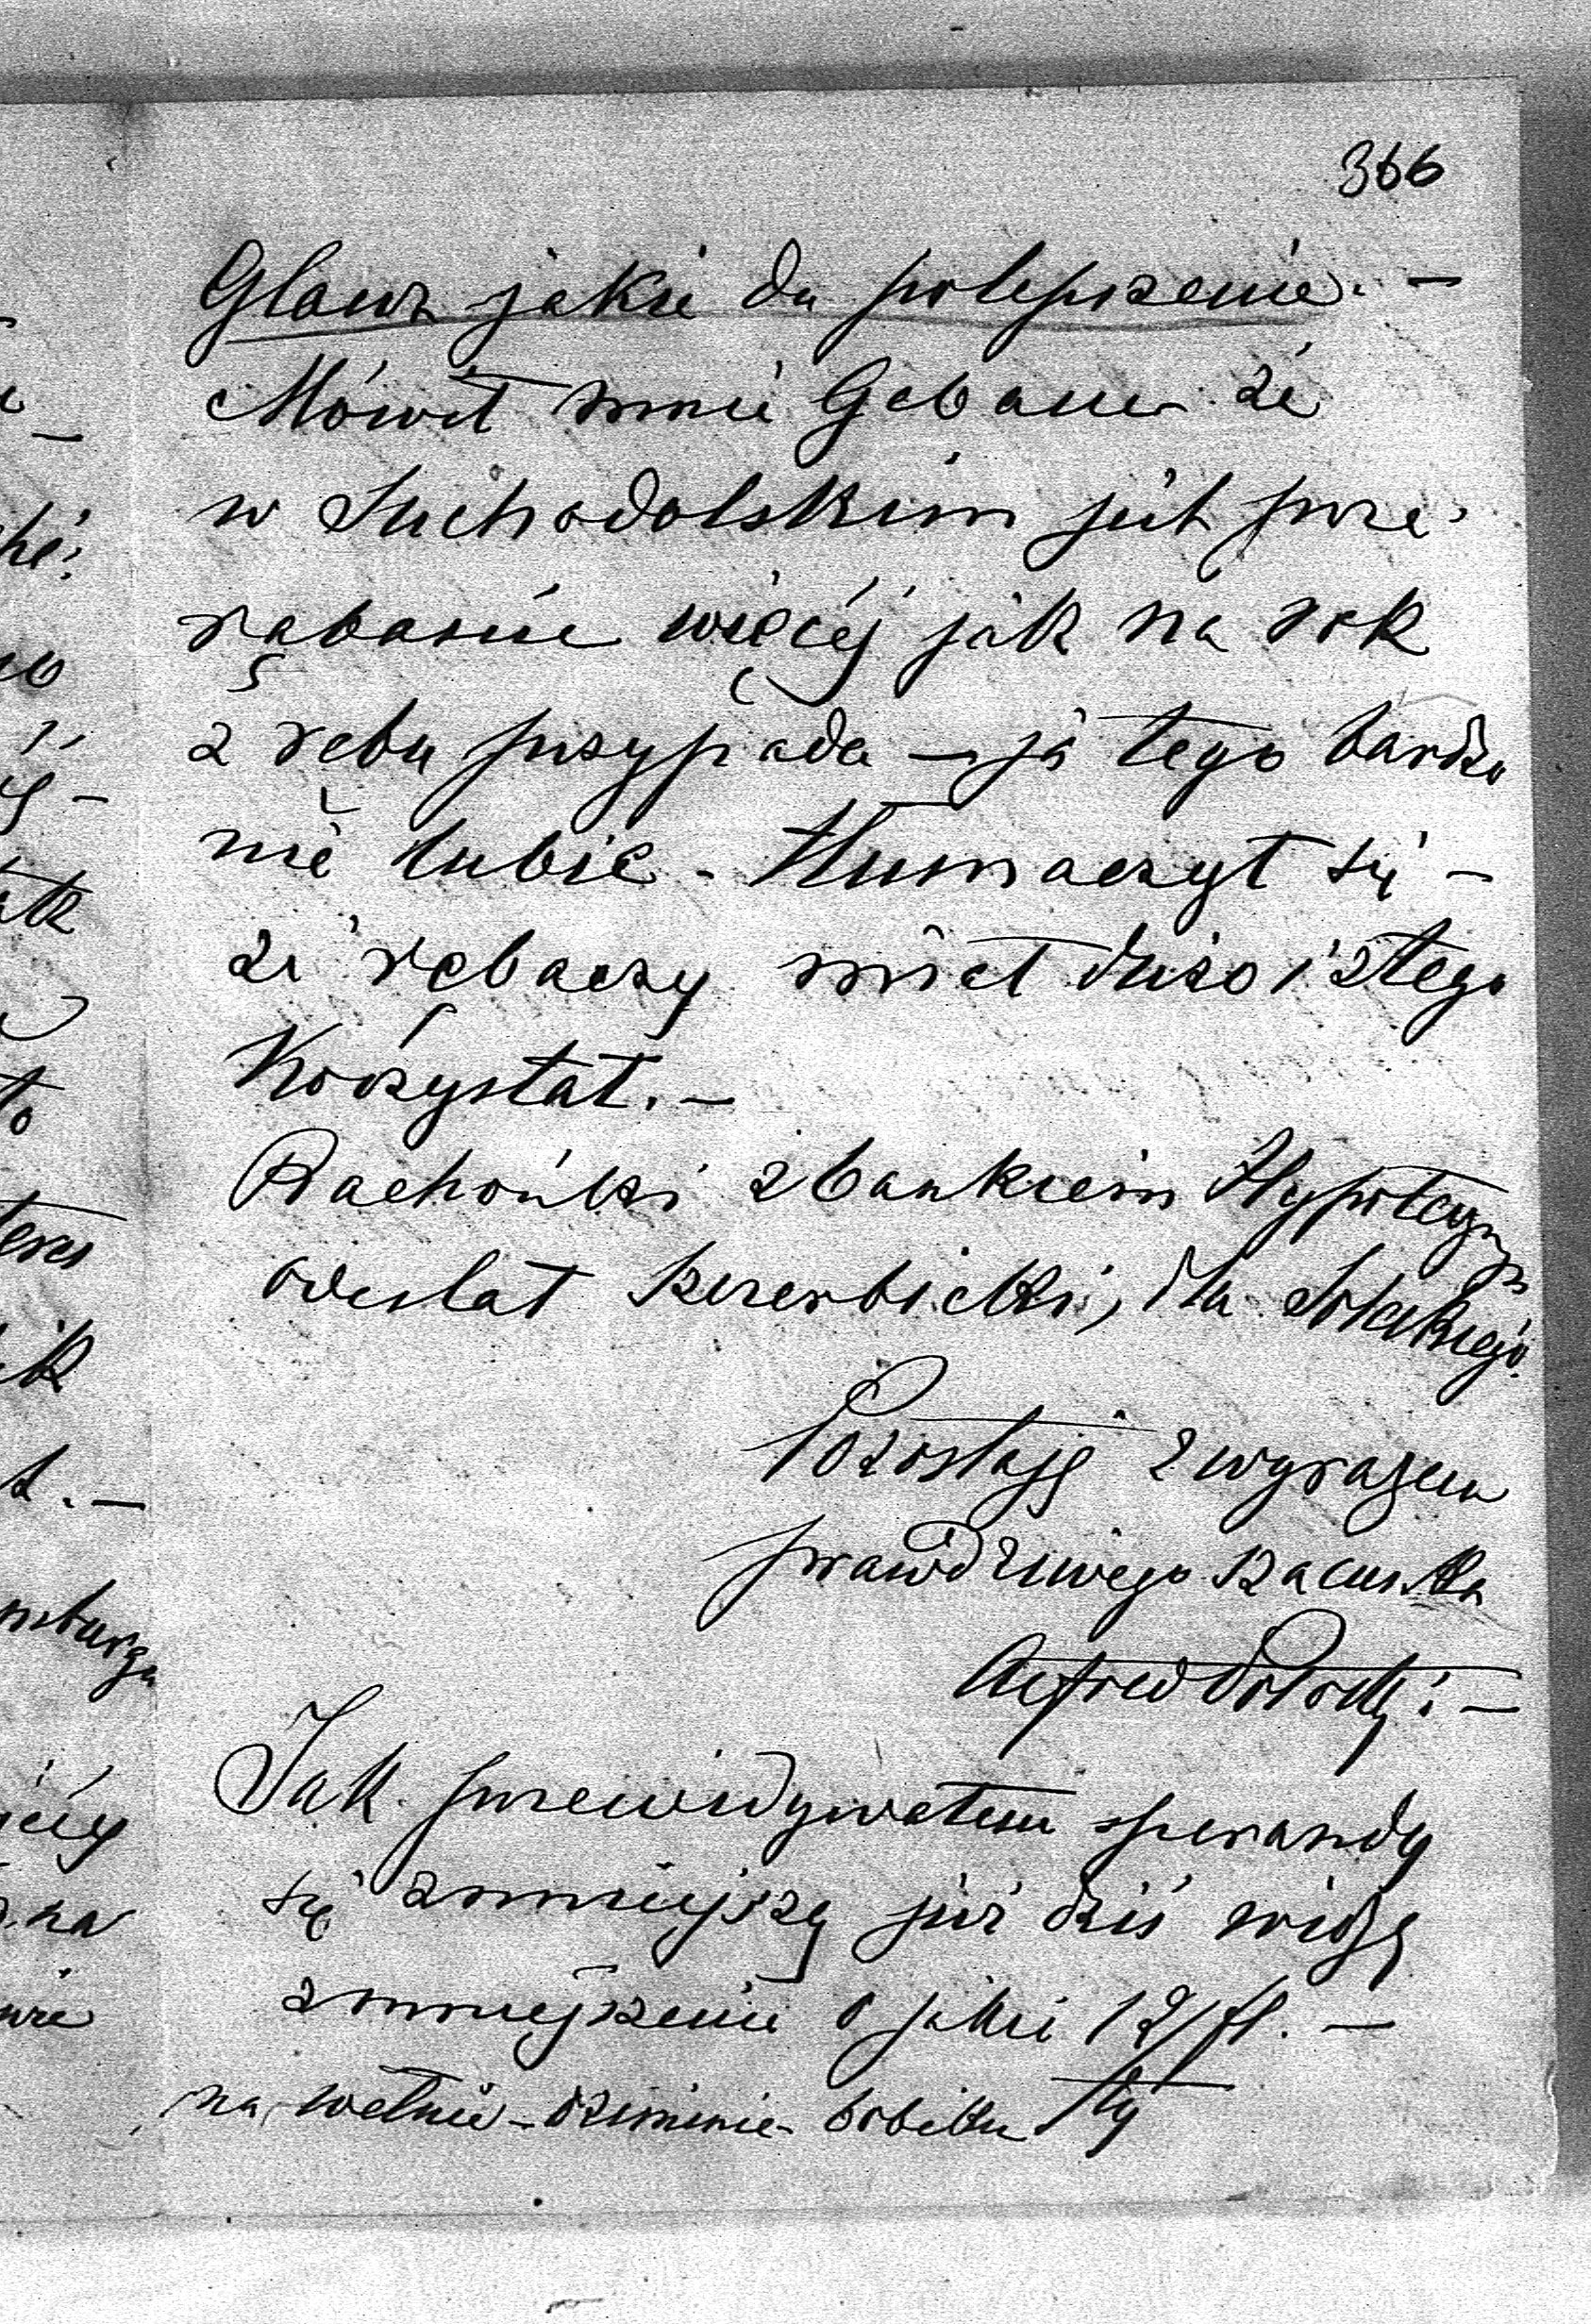 366
Glowa jakie da polepszenie. —
Mówił mnie Gebauer że
w Suchodolskim jest prze-
rąbanie więcej jak na rok
z rębu przypada — ja tego bardzo
nie lubię. Tłumaczył się —
że rębaczy miał dużo i z tego
korzystał. —
Rachónki z bankiem Hypotecznym
odesłał Szczerbicki, dla
Pozostaję z wyrazem
prawdziwego szacunku
Alfred Potocki. —
Jak przewidywałem sperandy
się zmniejszą już dziś widzę
zmniejszenie o jakie 12/fl. —
na wełnie - oziminie - bobiku